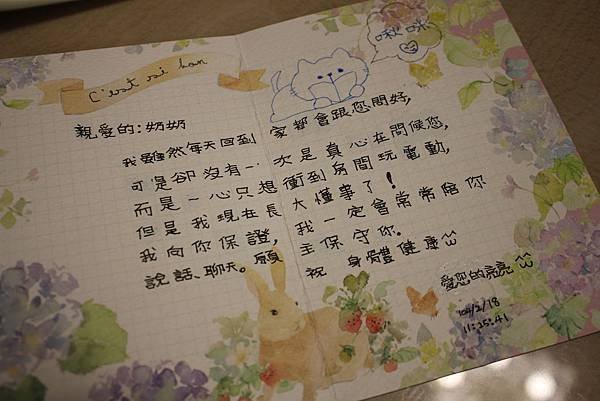 C'est si bon
啾咪
親愛的:奶奶
我雖然每天回到家都會跟您問好,
可是卻沒有一次是真心在問候您,
而是一心只想衝到房間玩電動,
但是我現在長大懂事了!
我向你保證,我一定會常常陪你
說話、聊天。願主保守你。
祝 身體健康
愛您的亮亮
104/2/18
11:25:41